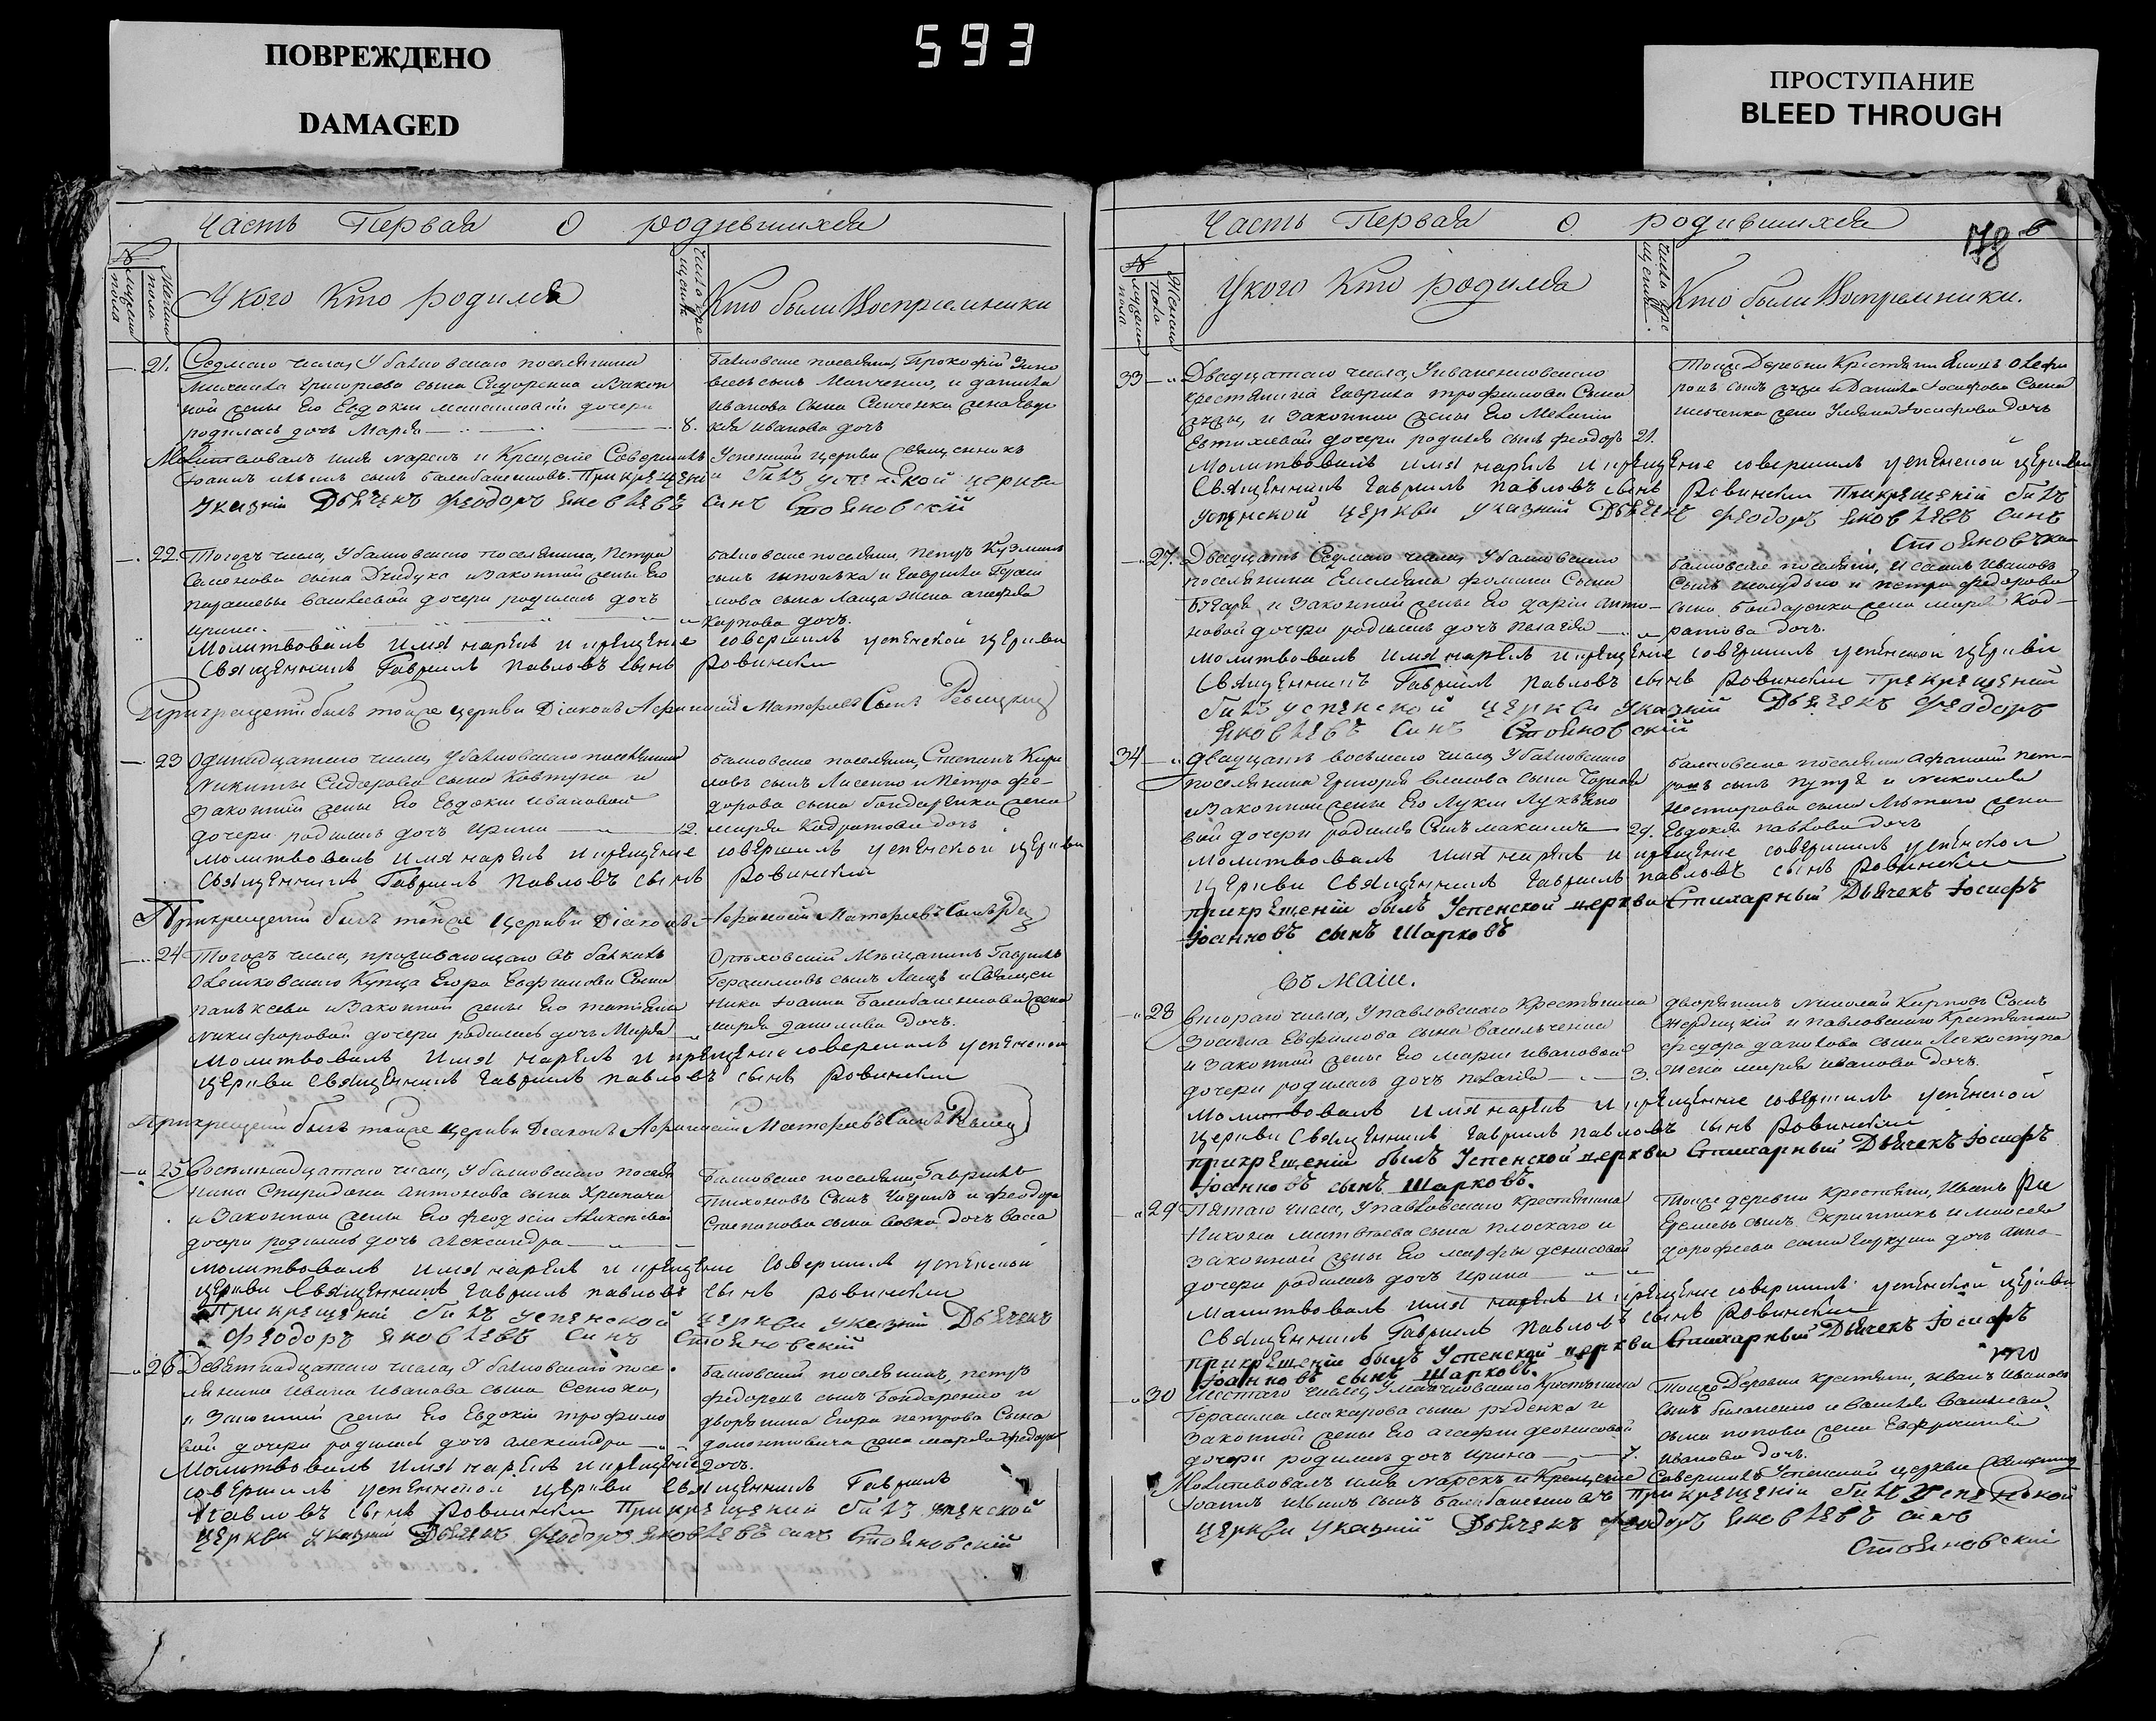 ПОВРЕЖДЕНО
DAMAGED
593
ПРОСТУПАНИЕ
BLEED THROUGH
Часть Первая О родившихся
№
Мужеска пола
Женска пола
У кого Кто родился
Число крещенія
Кто были Восприемники
21. Седмаго числа, У балковскаго поселянина
Михаила Григорьева сына Сидоренка и закон
ной жены его Евдокіи Максимовой дочери
родилась дочь Марѳа 8.
балковские поселяни, Прокофій Зино
вьевъ сынъ и Данила
Иванова сына жена Евдо
кія Иванова дочь
Молитвовалъ имя нарекъ и Крещеніе Совершилъ Успенской церкви священникъ
Іоаннъ сынъ Балабашновъ. При крещеніи билъ успенской церкви
указній Дьячекъ Феодоръ Яковлевъ синъ Стояновскій
22. Тогожъ числа, У балковскаго поселянина, Петра
Семенова сына и законной жены его
Параскевы Васильевой дочери родилась дочь
Ирина.
балковские поселяни, Петръ Кузминъ
сынъ и Гаврила Гераси
мова сына Лаща жена Агафія
Карпова дочь.
Молитвовалъ имя нарекъ и крещение совершилъ успенской церкви
Священникъ Гавриилъ Павловъ сынъ Ровинский
При крещеніи былъ тойже церкви Діаконъ Афанасій Матфеевъ Сынъ
23 Одинадцатаго числа, У балковскаго поселянина
Никиты Сидорова сына Ковтуна и
законной жены его Евдокіи Ивановой
дочери родилась дочь Ирина 12.
балковские поселяни, Степанъ Кири
ловъ сынъ Лисенко и Петра Фе-
дорова сына бондаренка жена
Марѳа Кодратова дочь
Молитвовалъ имя нарекъ и крещение совершилъ успенской церкви
Священникъ Гавриилъ Павловъ сынъ Ровинский
При крещеніи былъ тойже Церкви Діаконъ Афанасій Матфеевъ Сынъ
24 Тогожъ числа, проживающаго въ балкахъ
Олешковскаго Купца Егора Евфимова Сына
и законной жены его Татіяны
Никифоровой дочери родилась дочь Марѳа
Орѣховскій Мѣщанинъ Гавриилъ
Герасимовъ сынъ Лащъ и Священ
ника Іоанна Балабашнова жена
Марѳа Данилова дочь.
Молитвовалъ имя нарекъ и крещение совершилъ успенской
церкви Священникъ Гавриилъ Павловъ сынъ Ровинский
При крещеніи былъ тойже церкви Діаконъ Афанасій Матфеевъ Сынъ
25 Восемнадцатаго числа, У балковскаго поселя
нина Спиридона Антонова сына Храпача
и законной жены его Феодосіи Алексѣевой
дочери родилась дочь Александра
Балковские поселяни, Гавриилъ
Тихоновъ Сынъ и Феодора
Степанова сына Вовка дочь Васса
Молитвовалъ имя нарекъ и крещение совершилъ успенской
церкви Священникъ Гавриилъ Павловъ сынъ Ровинский
При крещеній билъ успенской церкви указній Дьячекъ
Феодоръ Яковлевъ синъ Стояновскій
26 Девятнадцатаго числа, У балковскаго посе
лянина Ивана Иванова сына
и законной жены его Евдокіи Трофимо
вой дочери родилась дочь Александра
Балковский поселянинъ, Петръ
Федоровъ сынъ Бондаренко и
дворянина Егора Петрова Сына
Домонтовича жена Марѳа Федорова
дочь.
Молитвовалъ имя нарекъ и крещение
совершилъ успенской церкви священникъ Гавриилъ
Павловъ сынъ Ровинский При крещении билъ успенской
церкви указній Дьячекъ Феодоръ Яковлевъ синъ Стояновскій
Часть Первая О родившихся
178
№
Мужеска пола
Женска пола
У кого Кто родился
Число крещенія.
Кто были Восприемники.
33 Двадцатаго числа, У ивашновскаго
крестянина Гаврила Трофимова Сына
и законной жены его Меланіи
Евтихіевой дочери родился сынъ Феодоръ 21.
Тойже Деревни Крестяни
сынъ и Данила Іосифова Сына
жена Уліяна Іосифова дочь
Молитвовалъ имя нарекъ и крещение совершилъ успенской церкви
Священникъ Гавриилъ Павловъ сынъ Ровинский При крещеній билъ
успенской церкви указній Дьячекъ Феодоръ Яковлевъ синъ
Стояновскій
27. Двадцать Седмаго числа, У балковскаго
поселянина Емеліяна Фомина Сына
и законной жены его Даріи Анто-
новой дочери родилась дочь Пелагея
балковские поселяни, Исаакъ Ивановъ
сынъ и Петра Федорова
сына Бондаренка жена Марѳа Код-
ратова дочь.
Молитвовалъ имя нарекъ и крещение совершилъ успенской церкви
Священникъ Гавриилъ Павловъ сынъ Ровинский При крещеній
билъ успенской церкви указній Дьячекъ Феодоръ
Яковлевъ синъ Стояновскій
34 Двадцать восьмаго числа У балковскаго
поселянина Григорія Власова сына
и законной жены его Лукіи Лукьяно
вой дочери родился Сынъ Максимъ 29.
балковские поселяни Афанасій Пет-
ровъ сынъ и Николая
Нестерова сына Лютаго жена
Евдокія Павлова дочь
Молитвовалъ имя нарекъ и крещение совершилъ успенской
церкви Священникъ Гавриилъ Павловъ сынъ Ровинский
при крещеніи былъ Успенской церкви Стихарный Дьячекъ Іосифъ
Іоанновъ сынъ Шарковъ
Въ Маіи.
28 Втораго числа, У павловскаго Крестянина
Зосима Евфимова сына Васильченка
и законной жены его Маріи Ивановой
дочери родилась дочь Пелагія 3.
Дворянинъ Николай Карповъ Сынъ
и павловскаго Крестянина
Федора Данилова сына Легкоступа
жена Марѳа Иванова дочь.
Молитвовалъ имя нарекъ и крещение совершилъ успенской
церкви Священникъ Гавриилъ Павловъ сынъ Ровинский
при крещеніи былъ Успенской церкви Стихарный Дьячекъ Іосифъ
Іоанновъ сынъ Шарковъ.
29 Пятаго числа, У павловскаго крестянина
Никона Матвѣева сына Плоскаго и
законной жены его Марфы Денисовой
дочери родилась дочь Ирина
Тойже деревни Крестяни, Иванъ
Еремѣевъ сынъ Скрипникъ и Моисея
Дорофеева сына Горкуши дочь Анна
Молитвовалъ имя нарекъ и крещение совершилъ успенской церкви
Священникъ Гавриилъ Павловъ сынъ Ровинский
при крещеніи былъ Успенской церкви Стихарный Дьячекъ Іосифъ
Іоанновъ сынъ Шарковъ.
30 Шестаго числа, У Крестянина
Герасима Макарова сына и
законной жены его Агафіи
дочери родилась дочь Ирина 7.
Тойже Деревни крестяни, Иванъ Ивановъ
сынъ и Василія Васильева
сына Попова жена Евфросинія
Иванова дочь.
Молитвовалъ имя нарекъ и Крещение Совершилъ Успенской церкви Священникъ
Іоаннъ сынъ Балабашновъ При крещеніи билъ Успенской
церкви указній Дьячекъ Феодоръ Яковлевъ синъ
Стояновскій